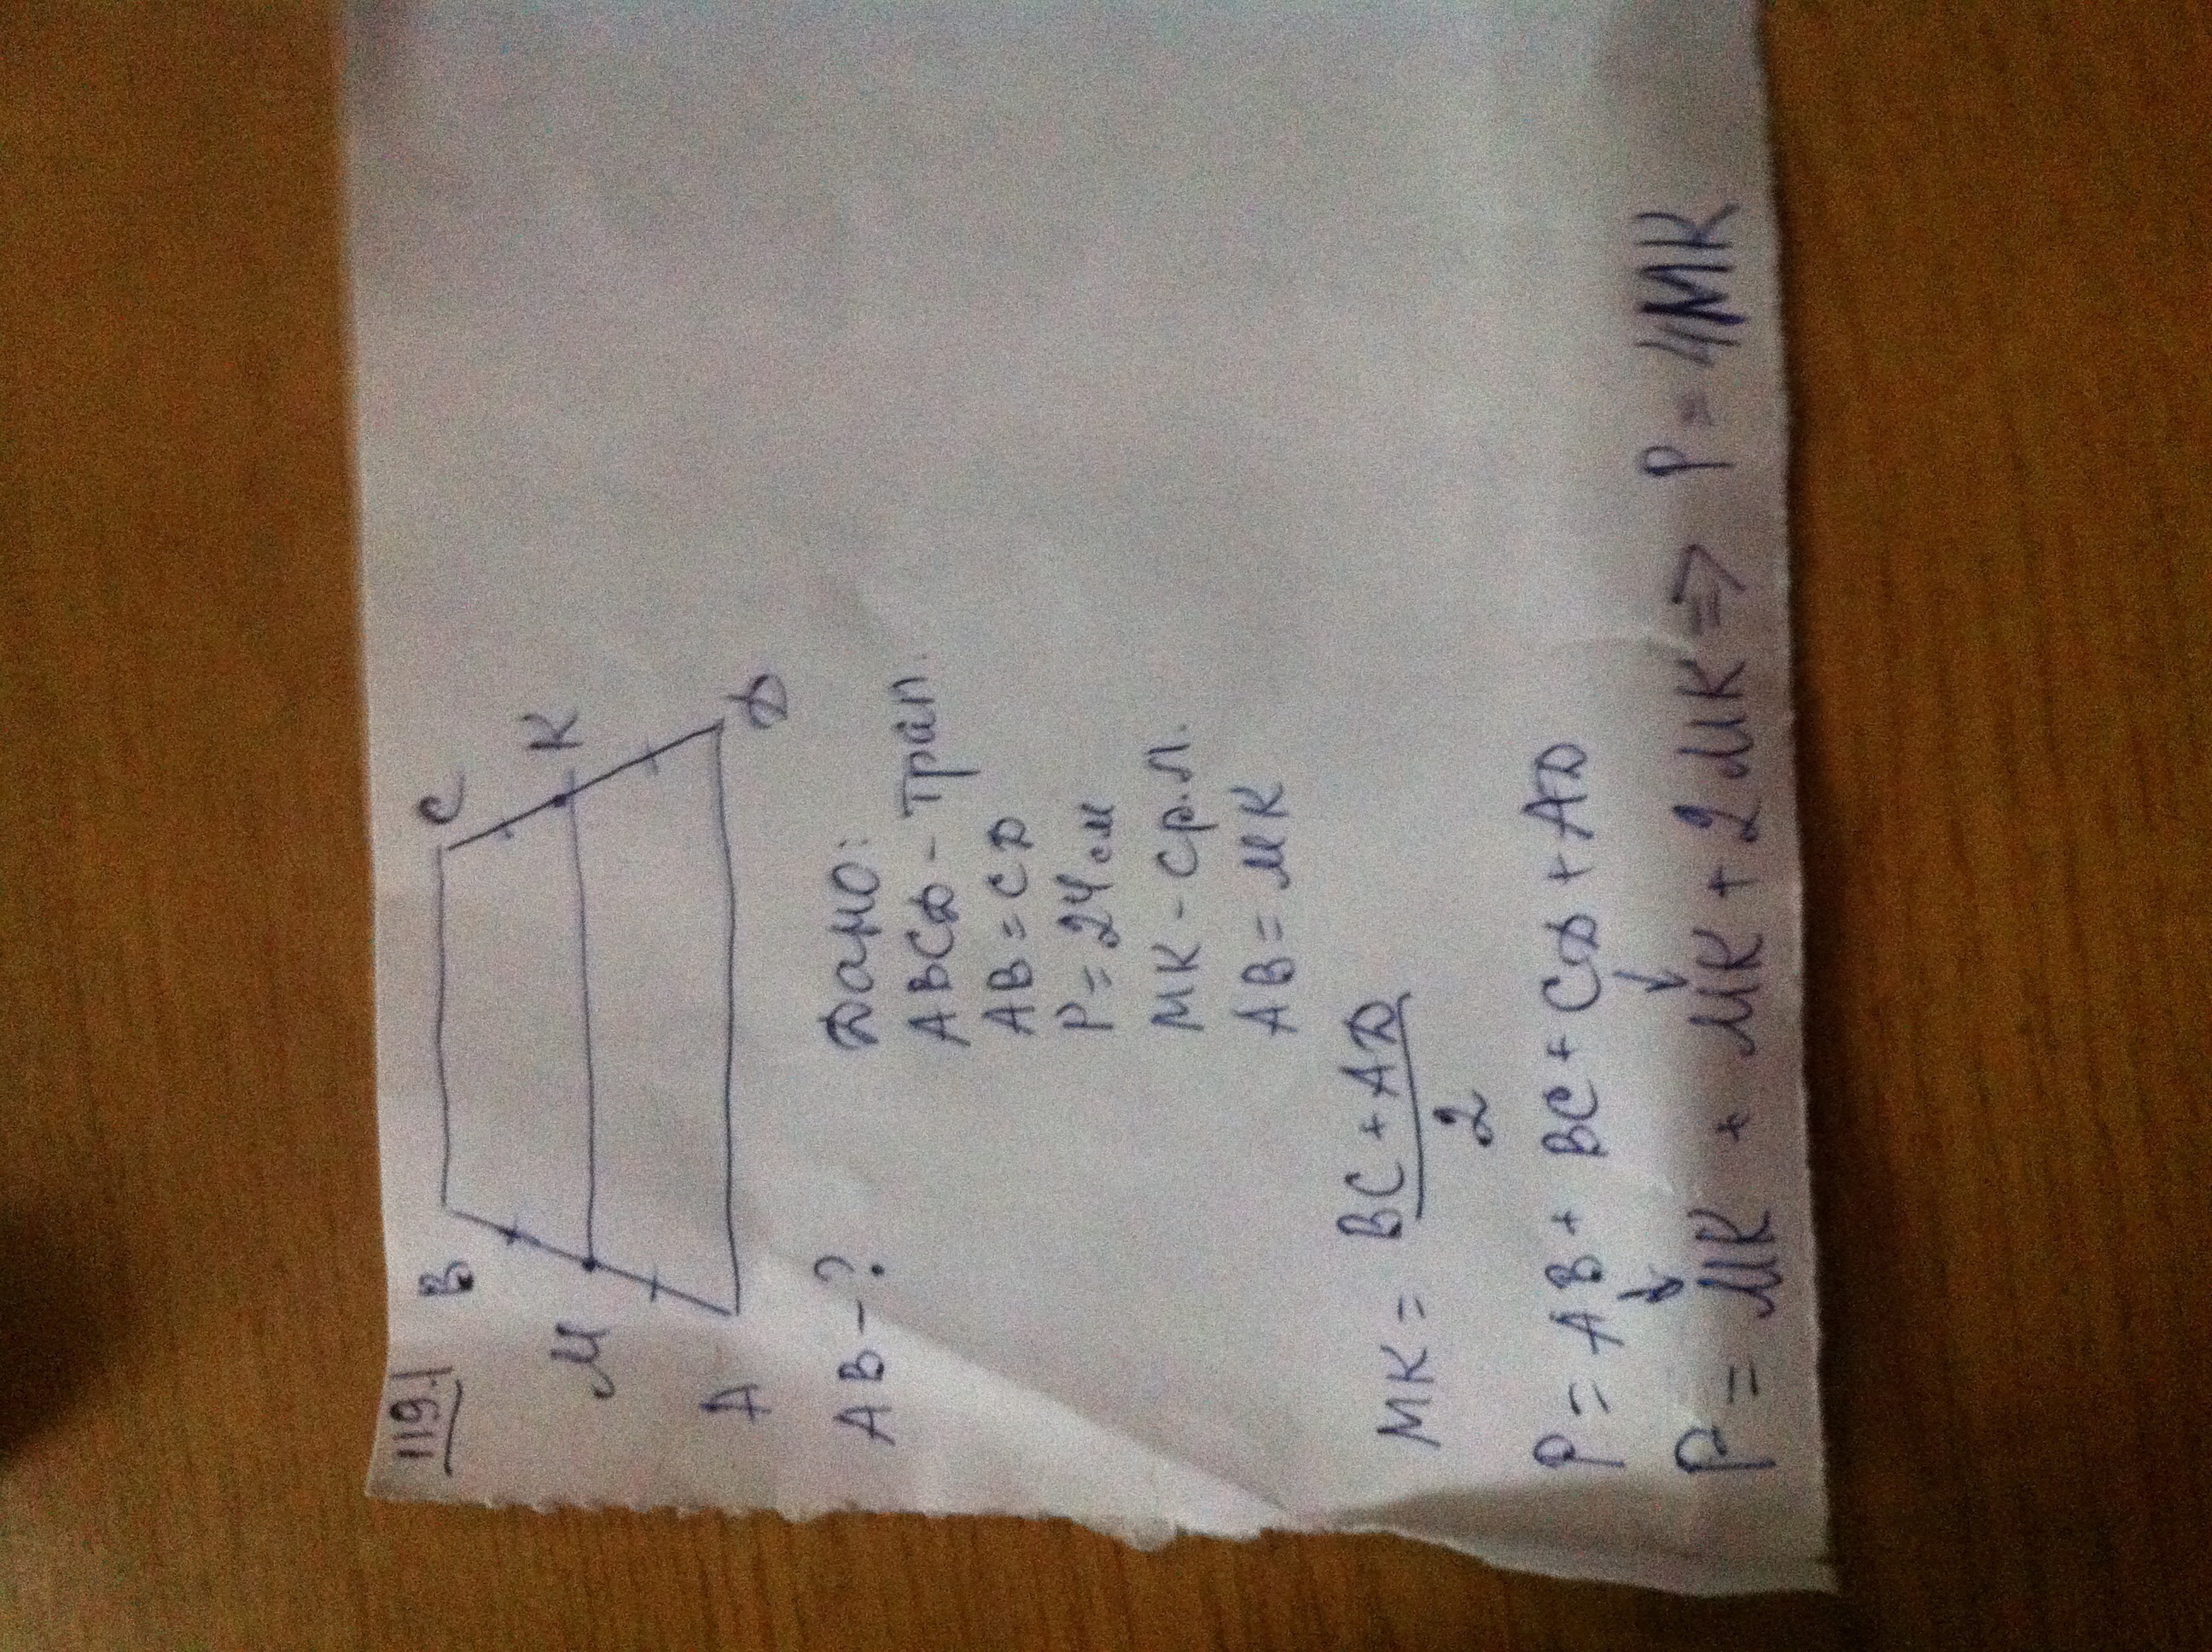 119.1
B C
M K
A D
AB - ?
Дано:
ABCD - трап.
AB = CD
P = 24 см
MK - ср.л.
AB = MK
MK = BC + AD
2
P = AB + BC + CD + AD
P = MK + MK + 2MK => P = 4MK